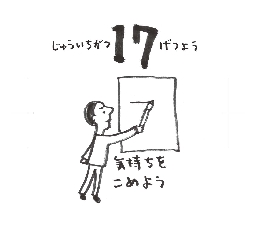 じゅういちがつ 17 げつよう
気持ちを
こめよう